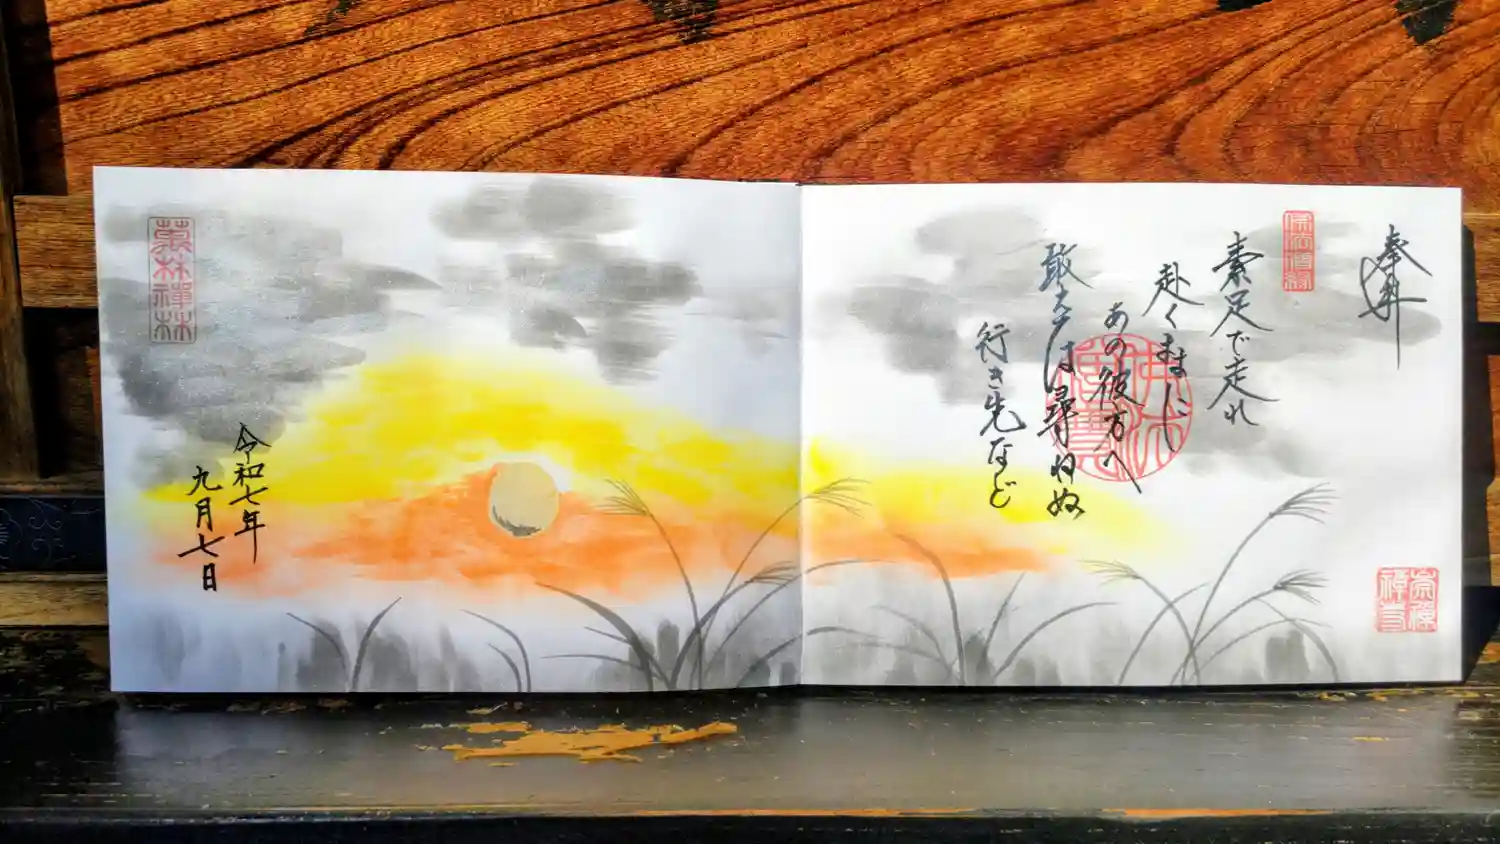 奉拝
素足で走れ
赴くままに
あの彼方へ
敢えては尋ねぬ
行き先など
令和七年
九月七日